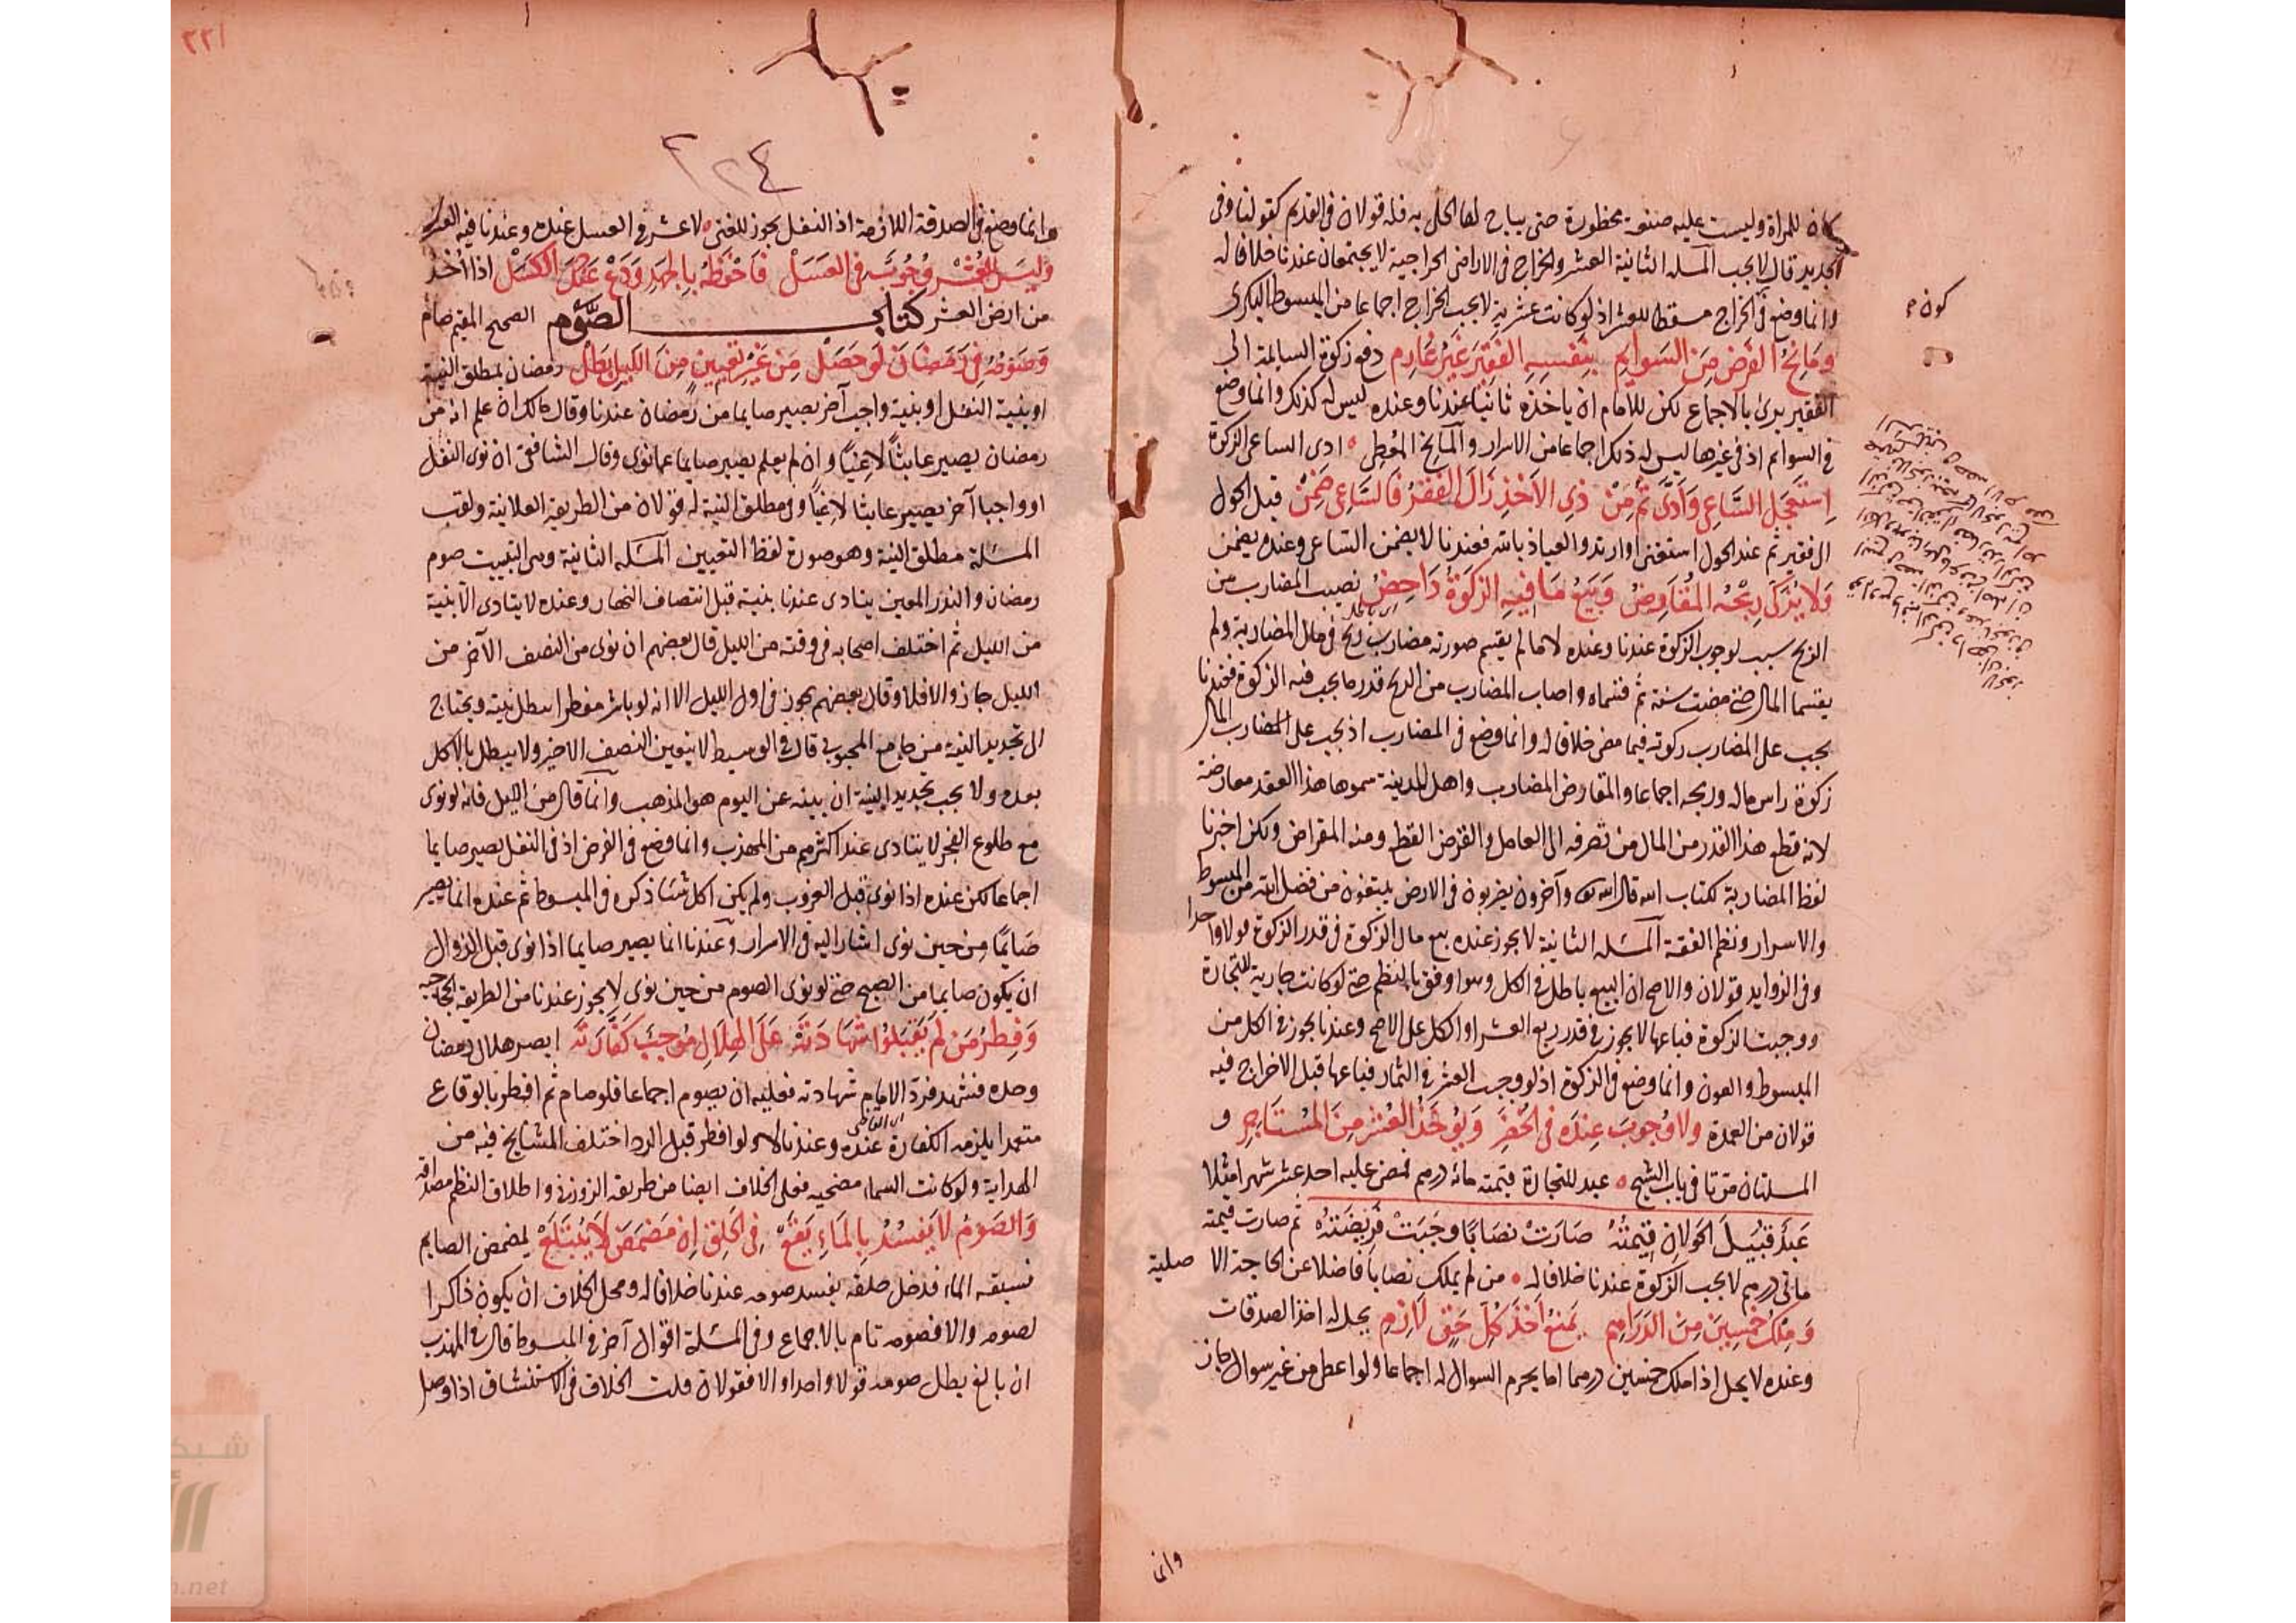 كان للمرأة وليست عليه صنعة محظورة حتى يباح لها الحلي به فله قولان في القديم كقولنا وفي
الجديد قال لا يجب المسئلة الثانية العشر والخراج في الاراضي الخراجية لا يجتمعان عندنا خلافا له
وانما وضع في الخراج مسقطا للعشر اذ لو كانت عشرية لا يجب الخراج اجماعا من المبسوط البكري
ومانح الفرض من السوايم بنفسه الفقير غير غارم دفع زكوة السايمة الى
الفقير برئ بالاجماع لكن للامام ان ياخذه ثانيا عندنا وعنده ليس له كذلك وانما وضع
في السوايم اذ في غيرها ليس له ذلك اجماعا من الاسرار والمانح المعطي ادى الساعي الزكوة
استعجل الساعي وادى ثم من ذي الاخذ زال الفقر فالساعي ضمن قبل الحول
الى فقير ثم عند الحول استغنى او ارتد والعياذ بالله فعندنا لا يضمن الساعي وعنده يضمن
ولا يزكى ربحه المقارض وبيع ما فيه الزكوة داحض نصيب المضارب من
الربح سبب لوجوب الزكوة عندنا وعنده لا ما لم يقسم صورته مضارب ربح في مال المضاربة ولم
يقتسما المال حتى مضت سنة ثم قسماه واصاب المضارب من الربح قدر ما يجب فيه الزكوة فعندنا
يجب على المضارب زكوته فيما مضى خلافا له وانما وضع في المضارب اذ يجب على المضارب المال
زكوة راس ماله وربحه اجماعا والمقارض المضارب واهل المدينة سموها هذا العقد معارضة
لانه قطع هذا القدر من المال من تصرفه الى العامل والقرض القطع ومنه المقراض ولكن اخبرنا
لفظ المضاربة لكتاب الله قال الله تع وآخرون يضربون في الارض يبتغون من فضل الله من المبسوط
والاسرار ونظم الفقه المسئلة الثانية لا يجوز عنده بيع مال الزكوة في قدر الزكوة قولا واحدا
وفي الزوايد قولان والاصح ان البيع باطل في الكل وهو اوفق بالنظم حتى لو كانت جارية للتجارة
ووجبت الزكوة فباعها لا يجوز في قدر ربع العشر او الكل على الاصح وعندنا يجوز في الكل من
المبسوط والعون وانما وضع في الزكوة اذ لو وجب العشر في الثمار فباعها قبل الاخراج فيه
قولان من العمدة ولا وجوب عنده في الخضر ويؤخذ العشر من المستاجر و
المسلتان مرتا في باب الشيخ عبد للتجارة قيمته مائة درهم فمضى عليه احد عشر شهرا مثلا
عبد قبيل الحولان قيمته صارت نصابا وجبت فريضته ثم صارت قيمته
مائتي درهم لا يجب الزكوة عندنا خلافا له من لم يملك نصابا فاضلا عن الحاجة الا صلية
وملك خمسين من الدراهم يمنع اخذ كل حق لازم يحل له اخذ الصدقات
وعنده لا يحل اذا ملك خمسين درهما اما يحرم السوال له اجماعا ولو اعطي من غير سوال جاز
وانما
كون
٢٢١
٢٢٤
وانما وضع في الصدقة اللازمة اذ النفل يجوز للغني لا عشر في العسل عنده وعندنا فيه العشر
وليس للعشر وجوب في العسل فاحفظه بالجهد ودع عنك الكسل اذا اخذ
من ارض العشر كتاب الصوم الصحيح المقيم صام
وصومه في رمضان لو حصل من غير تعيين من الليل بطل رمضان بمطلق النية
او بنية النفل او بنية واجب آخر يصير صايما من رمضان عندنا وقال مالك ان علم انه من
رمضان يصير عابثا لاغيا وان لم يعلم يصير صايما عما نوى وقال الشافعي ان نوى النفل
او واجبا آخر يصير عابثا لاغيا وفي مطلق النية له قولان من الطريقة العلائية ولقب
المسئلة مطلق النية وهو صورة لفظ التعيين المسئلة الثانية وهي التبييت صوم
رمضان والنذر المعين يتادى عندنا بنية قبل انتصاف النهار وعنده لا يتادى الا بنية
من الليل ثم اختلف اصحابه في وقته من الليل قال بعضهم ان نوى من النصف الآخر من
الليل جاز والا فلا وقال بعضهم يجوز في اول الليل الا انه لو باشر مفطرا بطل نيته ويحتاج
الى تجديد النية من جامع المحبوبي قال في الوسيط لا يتعين النصف الاخير ولا يبطل بالاكل
بعده ولا يجب تجديد النية ان بينه عن اليوم هو المذهب وانما قال من الليل فانه لو نوى
مع طلوع الفجر لا يتادى عند اكثرهم من المهذب وانما وضع في الفرض اذ في النفل يصير صايما
اجماعا لكن عنده اذا نوى قبل الغروب ولم يكن اكل شيئا ذكره في المبسوط ثم عنده انما يصير
صايما من حين نوى اشار اليه في الاسرار وعندنا انما يصير صايما اذا نوى قبل الزوال
ان يكون صايما من الصبح حتى لو نوى الصوم من حين نوى لا يجوز عندنا من الطريقة الحجاجية
وفطر من لم يقبلوا شهادته على الهلال موجب كفارته ابصر هلال رمضان
وحده فشهد فرد الامام شهادته فعليه ان يصوم اجماعا فلو صام ثم افطر بالوقاع
متعمدا يلزمه الكفارة عنده وعندنا لا ولو افطر قبل الرد اختلف المشايخ فيه من
الهداية ولو كانت السماء مضحية فعلى الخلاف ايضا من طريقة الزوزني واطلاق النظم مصداقه
والصوم لا يفسد بالماء يقع في الحلق ان مضمض لا يبتلع يمضمض الصايم
فسبقه الماء فدخل حلقه يفسد صومه عندنا خلافا له ومحل الخلاف ان يكون ذاكرا
لصومه والا فصومه تام بالاجماع وفي المسئلة اقوال آخر في المبسوط قال في المهذب
ان بالغ بطل صومه قولا واحدا والا فقولان قلت الخلاف في الاستنشاق اذا وصل